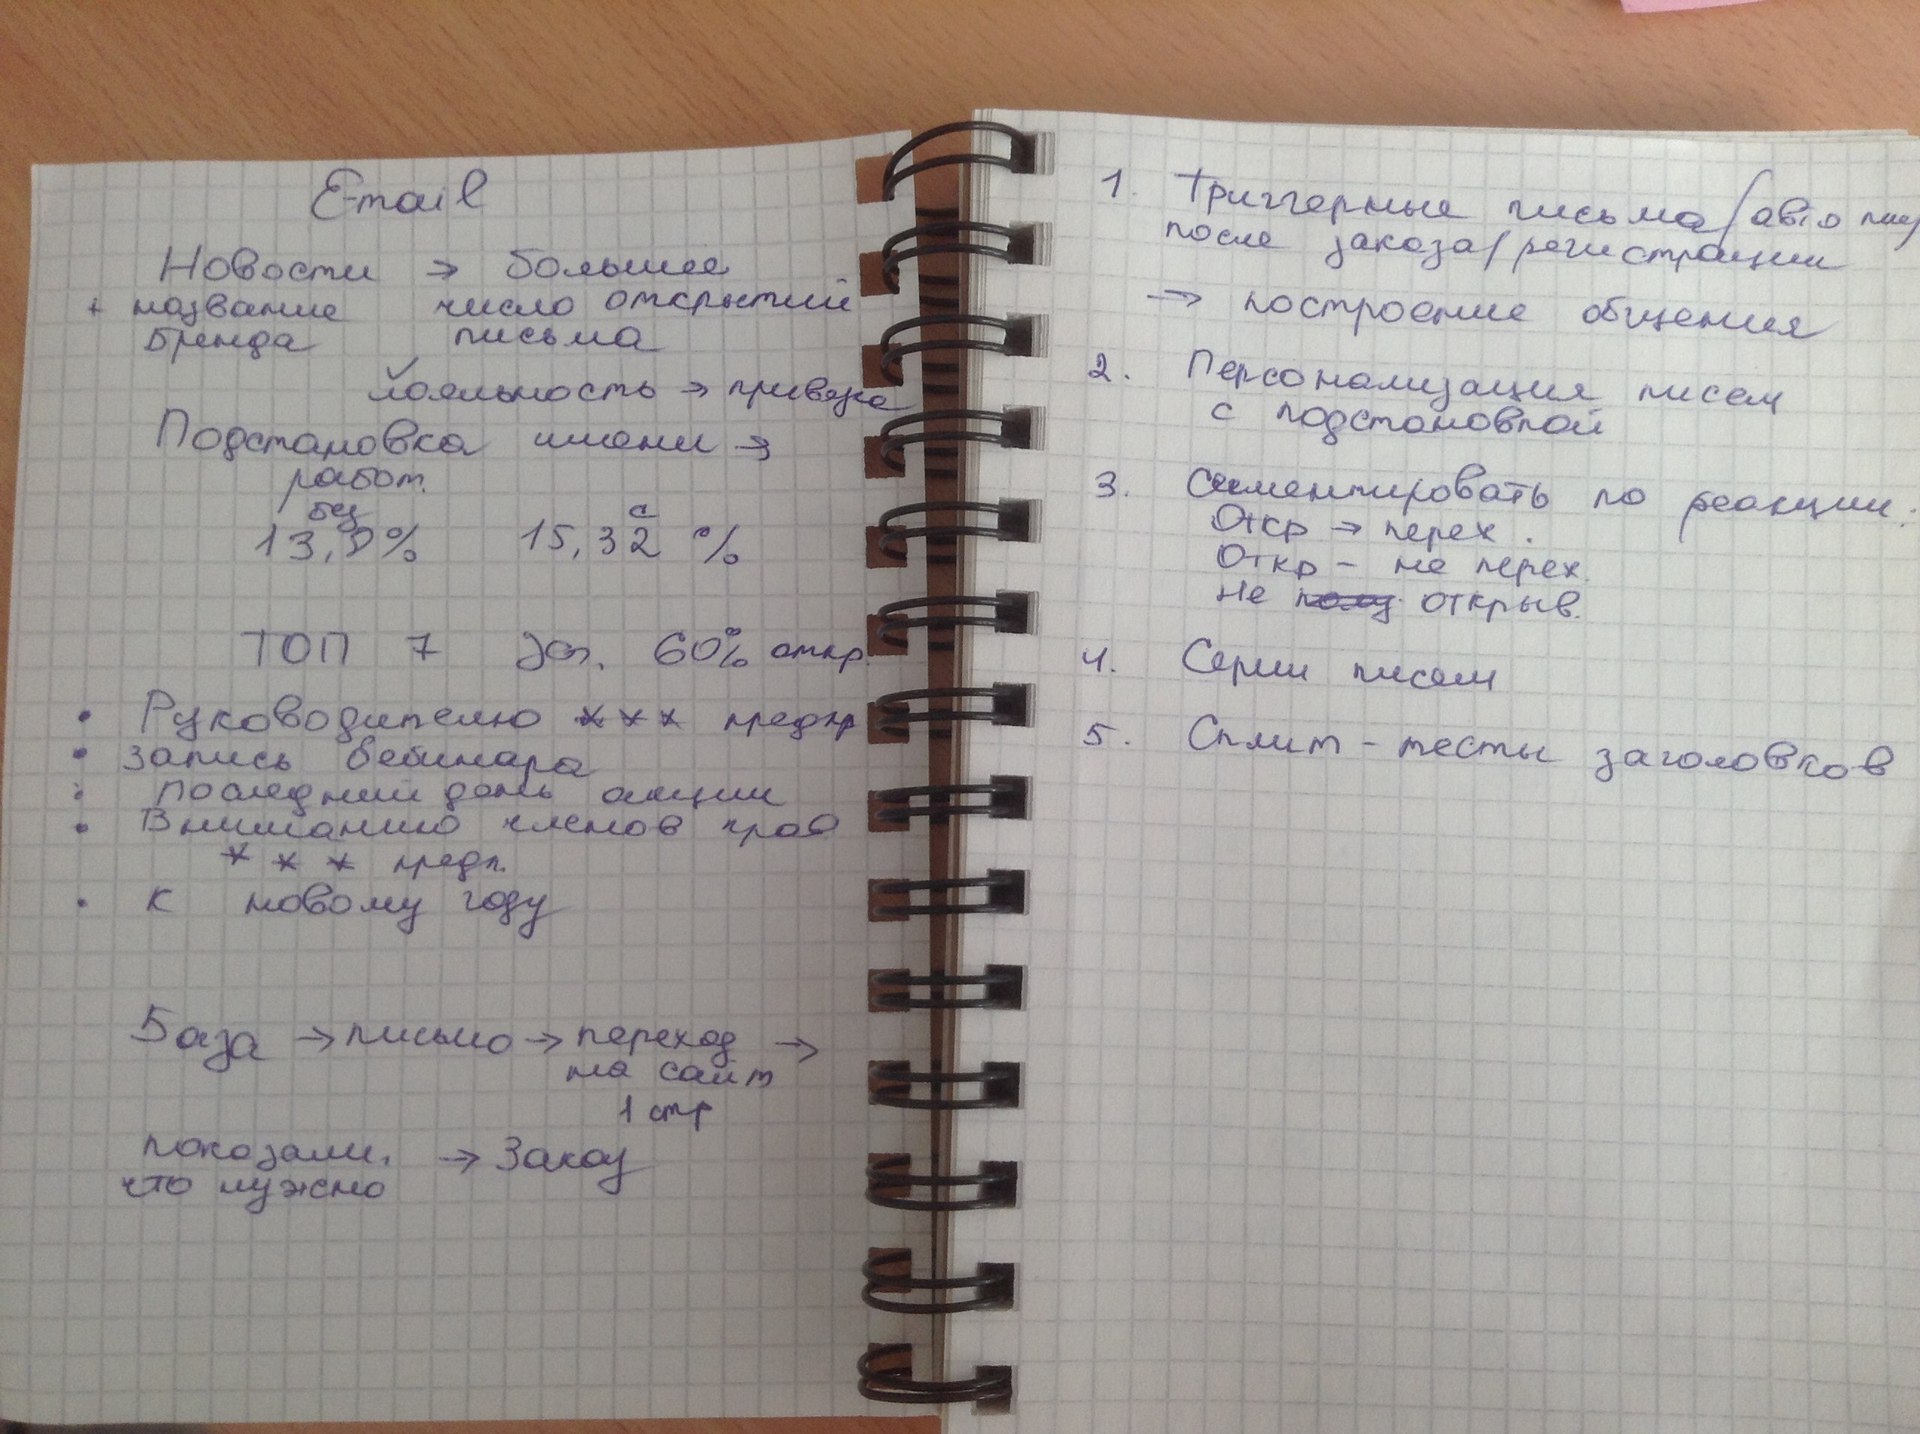 Email
Новости → большее
+ название число открытий
бренда письма
лояльность → привязка
Подстановка имени →
работ.
без с
13,9% 15,32 %
ТОП 7 60% откр.
• Руководителю *** предпр
• запись вебинара
• последний день акции
• Вниманию членов прав
*** предп.
• К новому году
База → письмо → переход →
на сайт
1 стр
показали, → Заказ
что нужно
1. Триггерные письма / авто
после заказа / регистрации
→ построение общения
2. Персонализация писем
с подстановкой
3. по реакции.
Откр → перех.
Откр - не перех.
не открыв.
4. Серии писем
5. Сплит-тесты заголовков